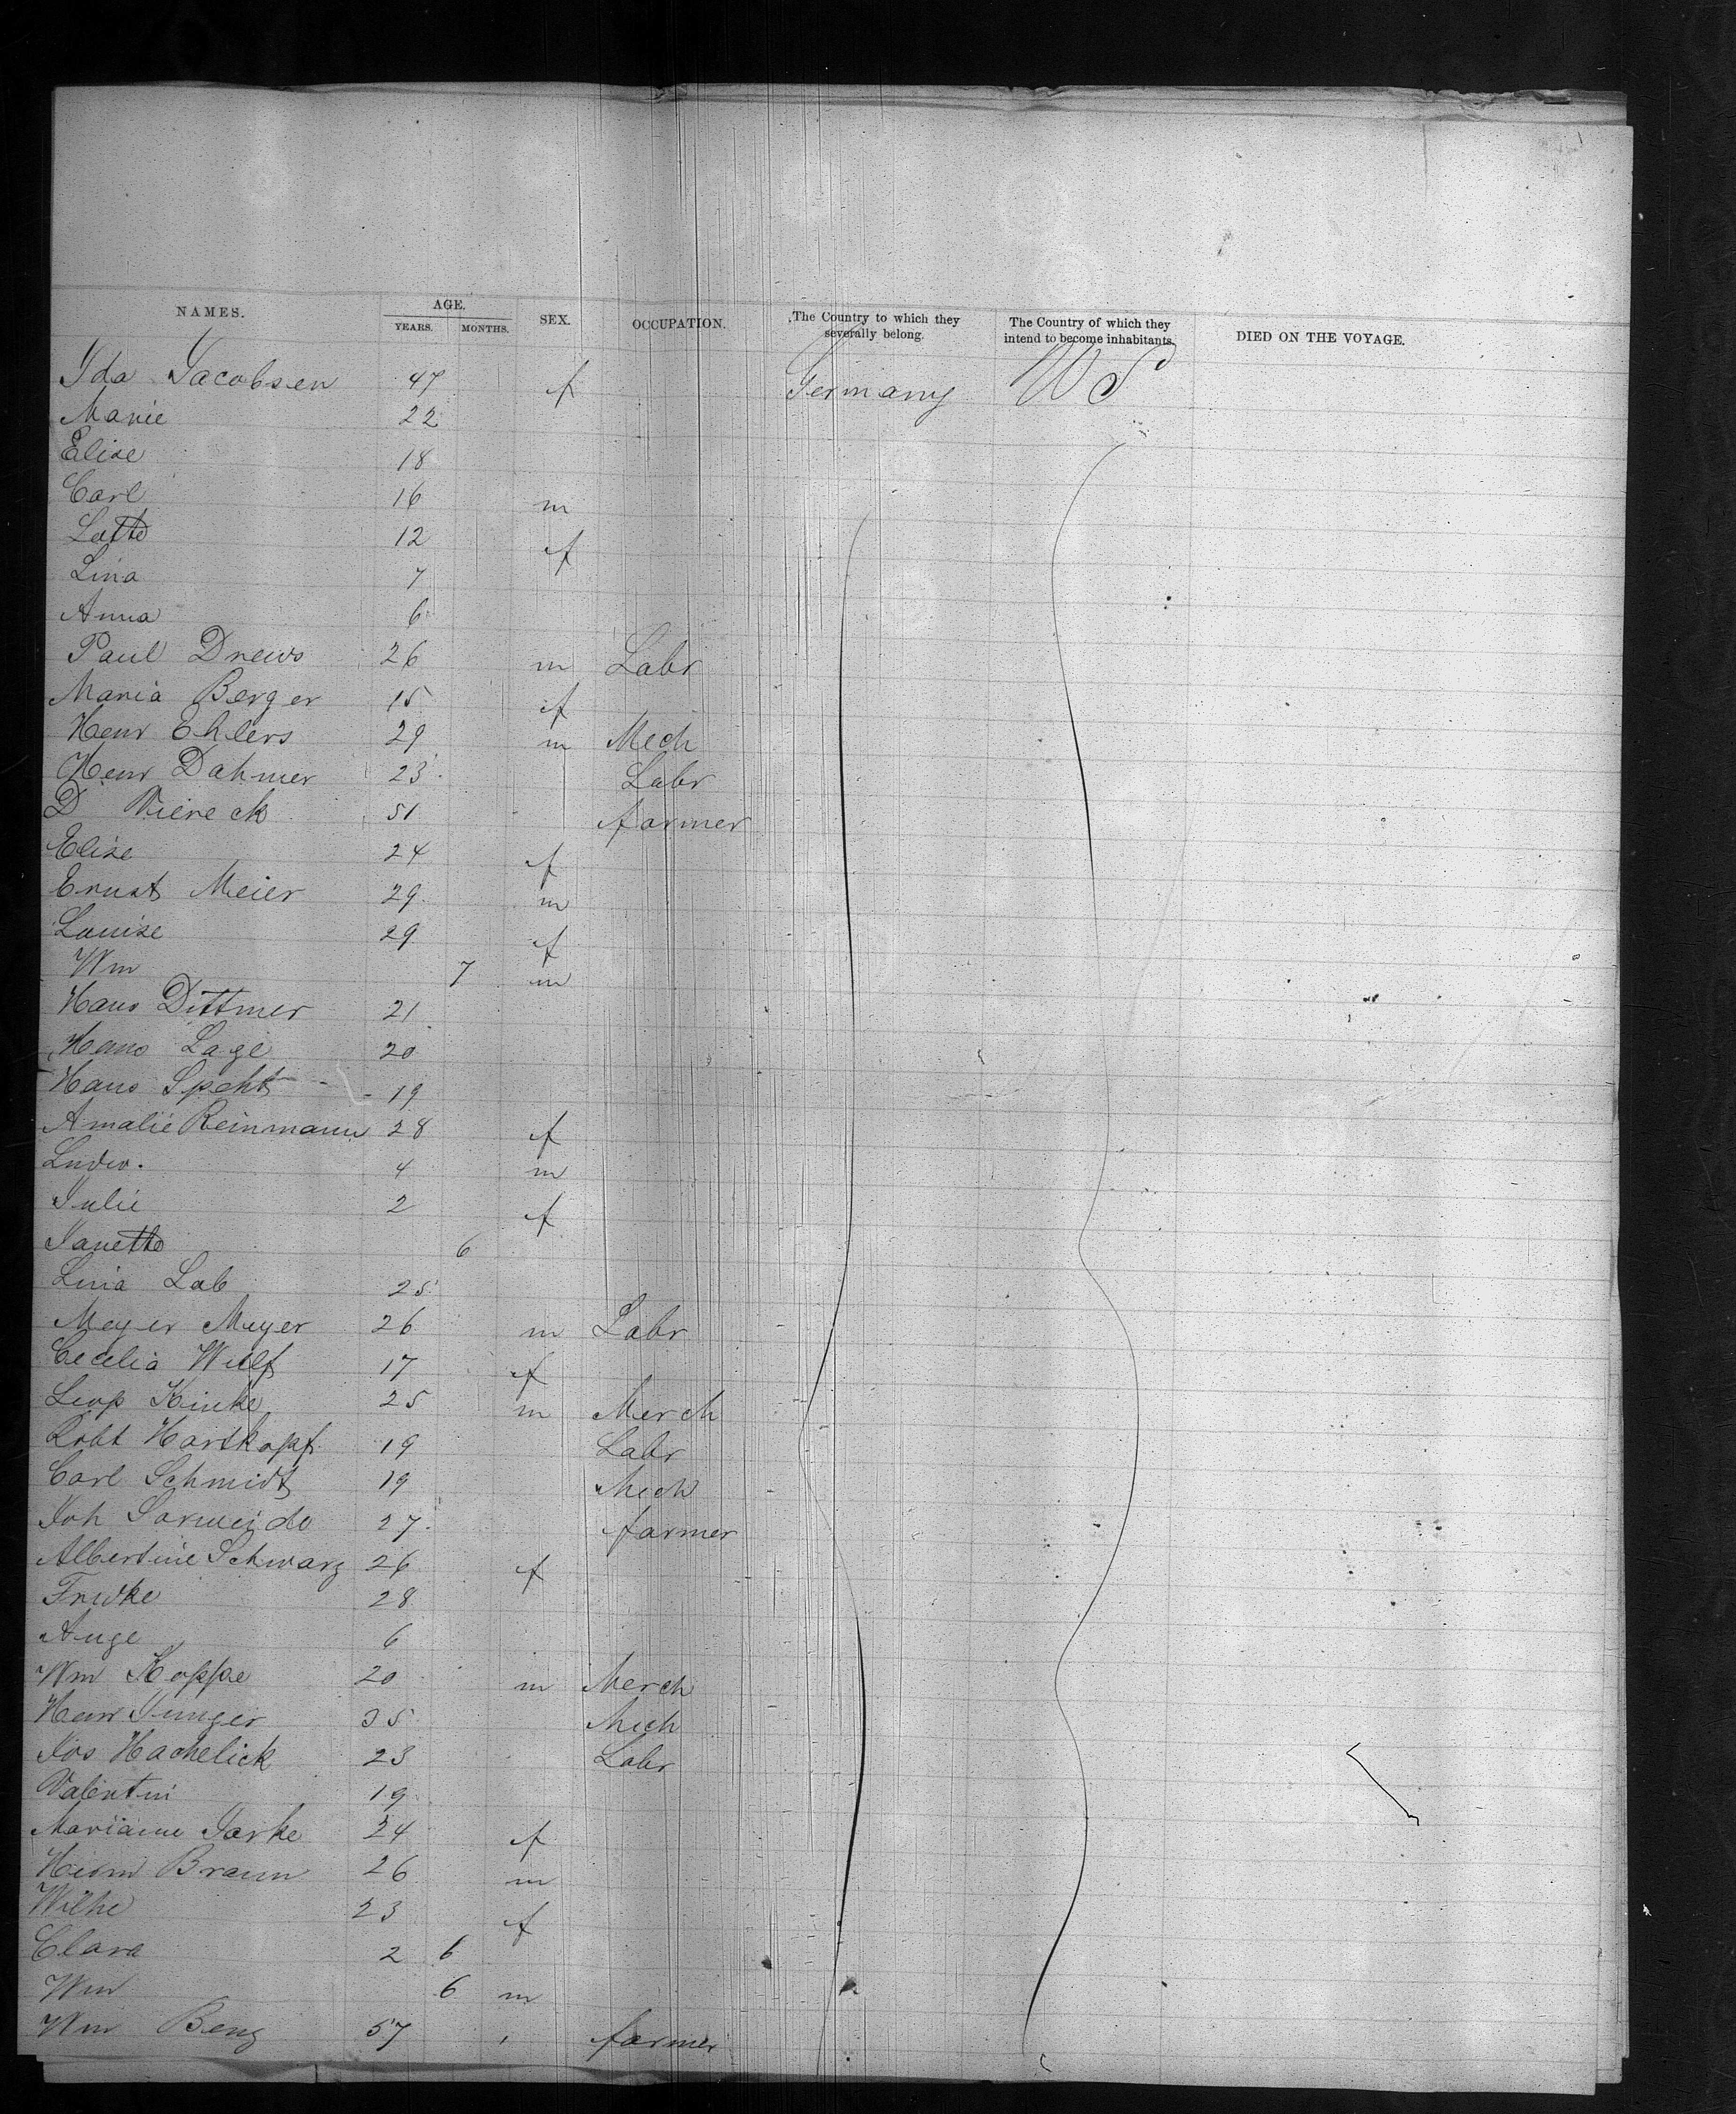 NAMES. AGE. YEARS. MONTHS. SEX. OCCUPATION. The Country to which they severally belong. The Country of which they intend to become inhabitants. DIED ON THE VOYAGE.
Ida Jacobsen 47 f Germany US
Marie 22
Elise 18
Carl 16 m
Lotte 12 f
Lina 7
Anna 6
Paul Drews 26 m Labr
Maria Berger 15 f
Henr Ehlers 29 m Mech
Henr Dahmer 23 Labr
D Viereck 51 farmer
Elise 24 f
Ernst Meier 29 m
Louise 29 f
Wm 7 m
Hans Dittmer 21
Hans Lage 20
Hans Specht 19
Amalie Reinmann 28 f
Ludw. 4 m
Julie 2 f
Janette 6
Lina Lab 25
Meyer Meyer 26 m Labr
Cecelia Wulf 17 f
Leop 25 m Merch
Robt Hartkopf 19 Labr
Carl Schmidt 19 Mech
Joh 27 farmer
Albertine Schwarz 26 f
28
Auge 6
Wm Koppe 20 m Merch
Henr Junger 35 Mech
Jos Hachelick 23 Labr
Valentin 19
Marianne Jarke 24 f
Herm Braun 26 m
Wilhe 23 f
Clara 2 6
Wm 6 m
Wm Benz 57 farmer